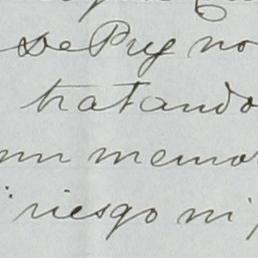 de Puy no
tratando
un memor
riesgo ni